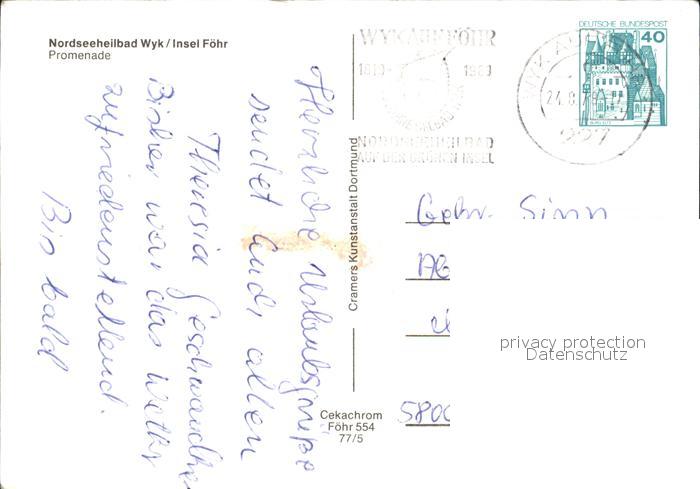 Nordseeheilbad Wyk / Insel Föhr
Promenade
WYK AUF FÖHR
1819 - 1969
NORDSEEHEILBAD
AUF DER GRÜNEN INSEL
DEUTSCHE BUNDESPOST
40
Herzliche Urlaubsgrüße
sendet Euch allen
Theresia
Bisher war das Wetter
zufriedenstellend.
Bis bald
Cramers Kunstanstalt Dortmund
Cekachrom
Föhr 554
77/5
Gebr. Sinn
5800
privacy protection
Datenschutz